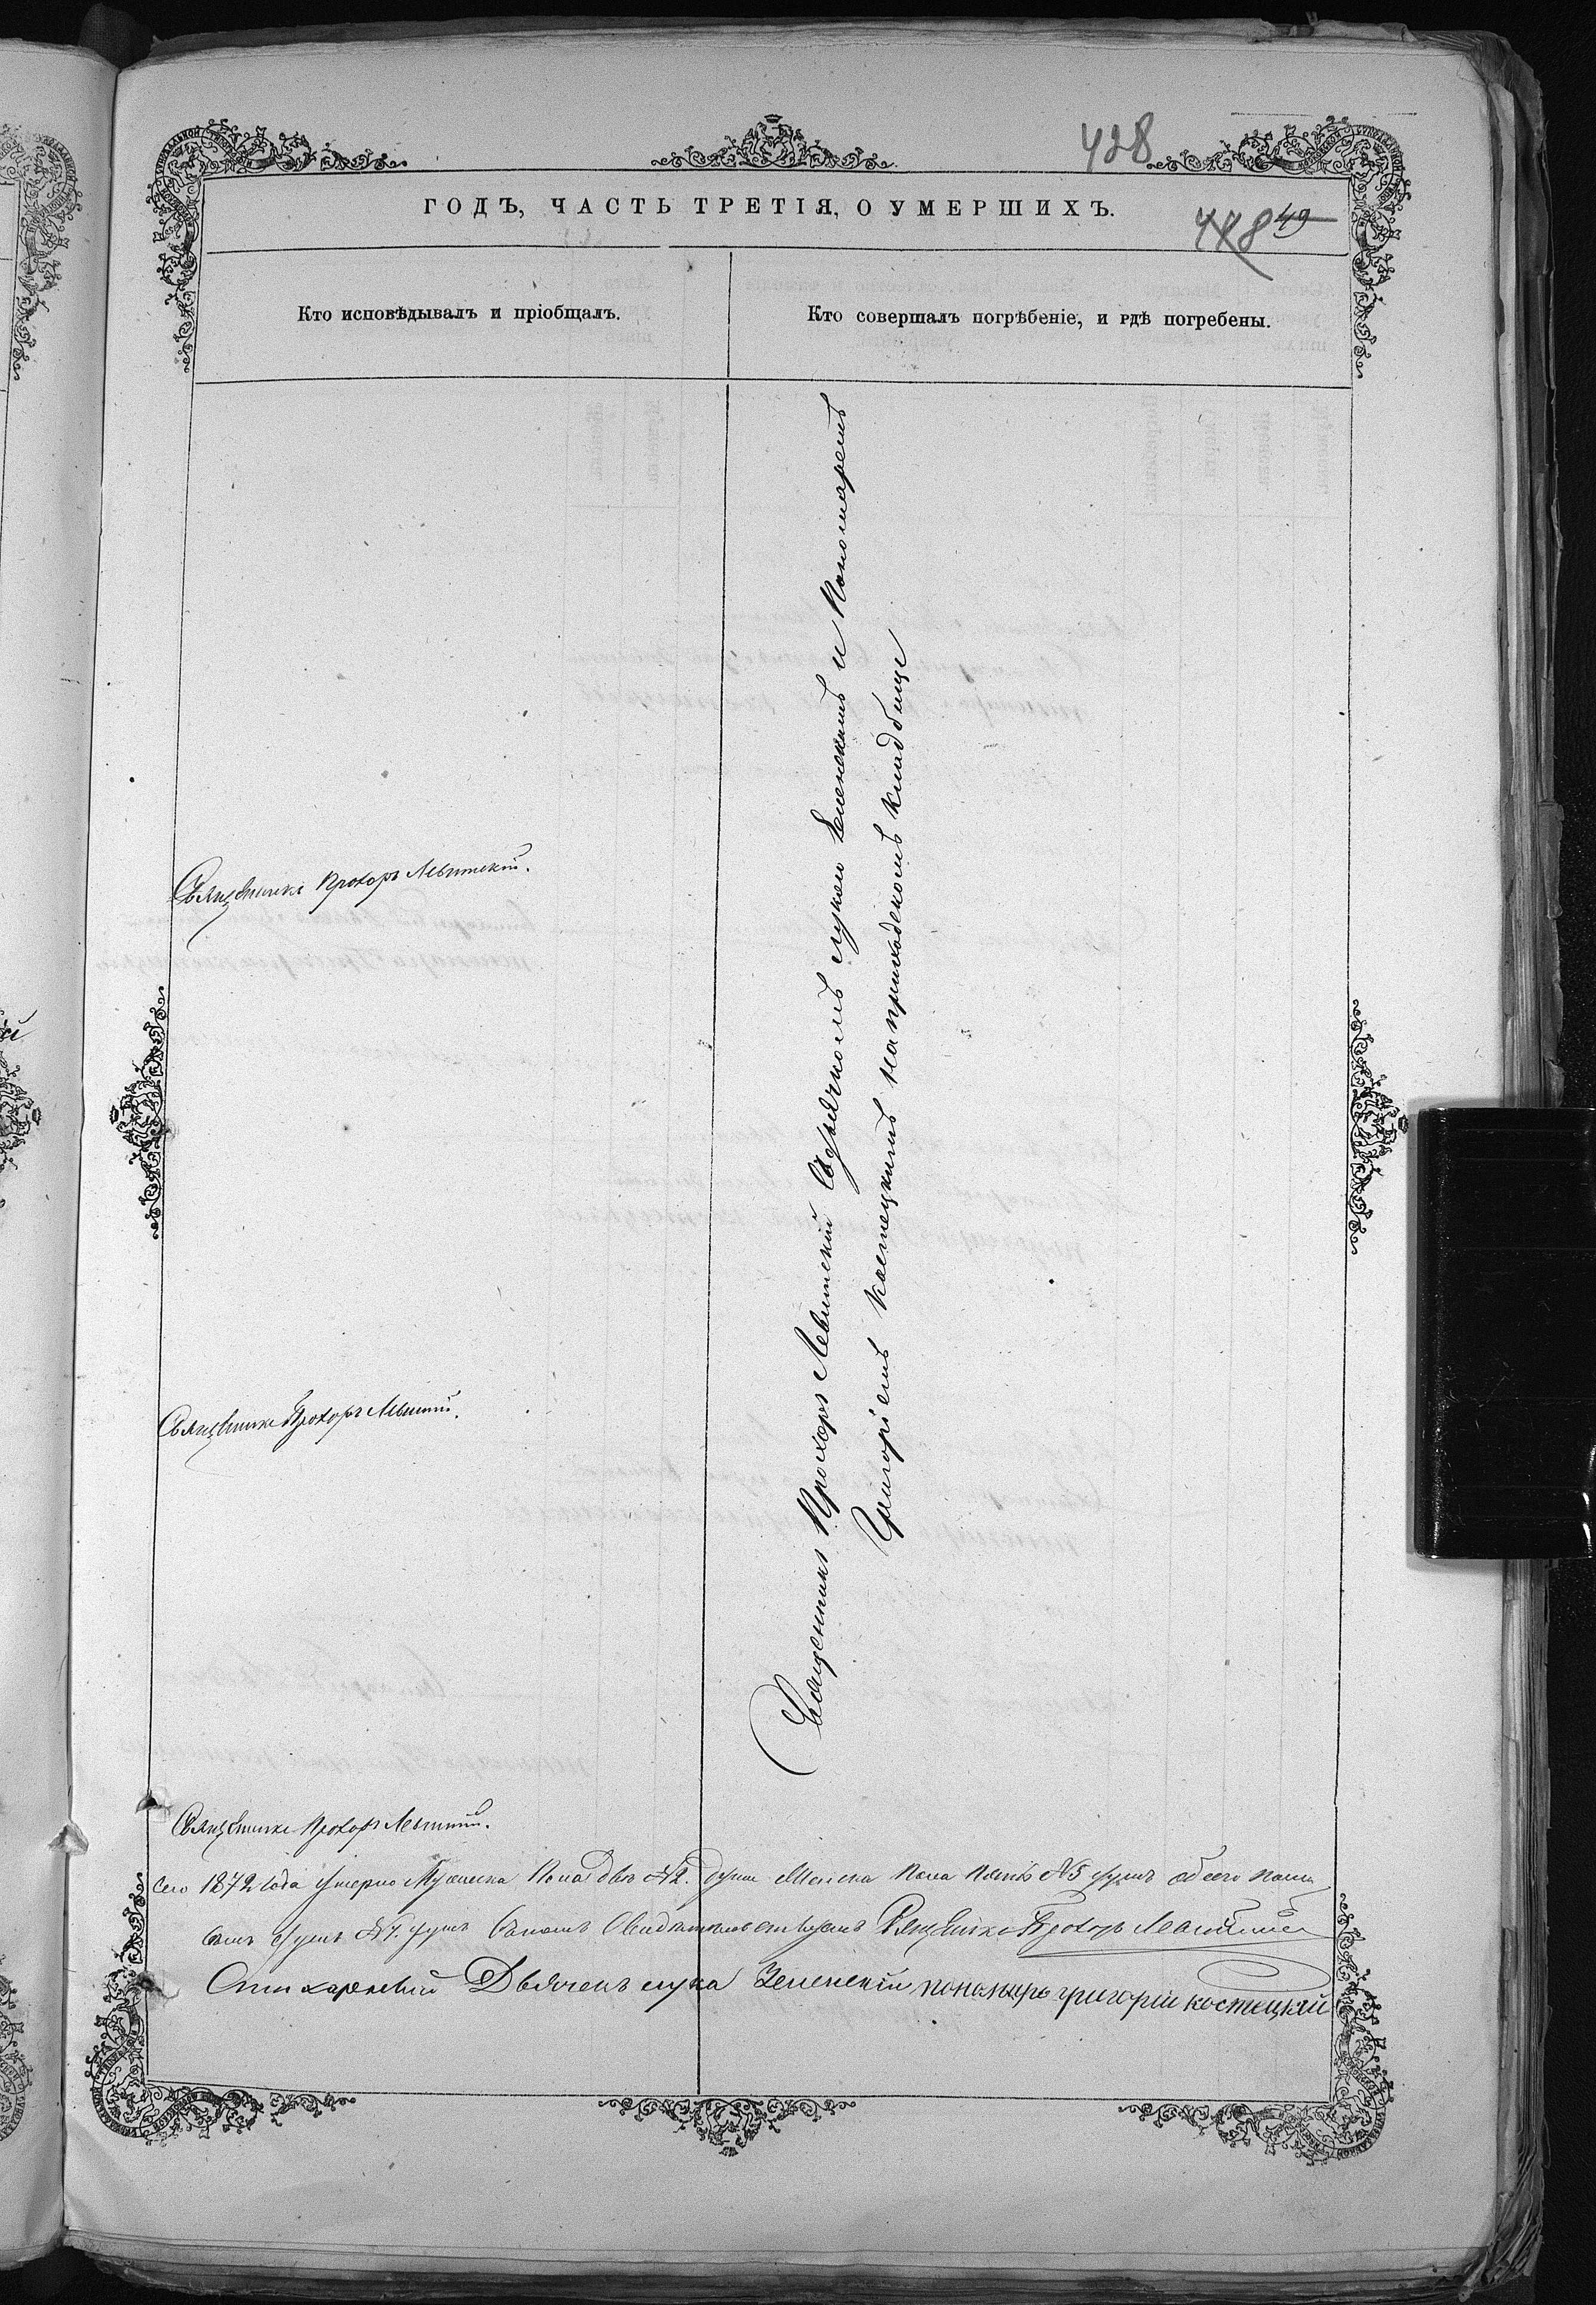 428
ГОДЪ, ЧАСТЬ ТРЕТІЯ, О УМЕРШИХЪ.
49
Кто исповѣдывалъ и пріобщалъ.
Кто совершалъ погрѣбеніе, и гдѣ погребены.
Священникъ Прохоръ Левитскій.
Священникъ Прохоръ Левитскій Съ дьячкомъ Лукою Зеленскимъ и Пономаремъ
Григоріемъ Костецкимъ на приходскомъ кладбище
Священникъ Прохоръ Левитскій.
Священникъ Прохоръ Левитскій.
Сего 1872 года умерло Мужеска Пола двѣ №2. души Женска Пола Пять №5 душъ обоего Пола
семь душъ №7. душъ Въ томъ Свидѣтельствуемъ Священникъ Прохоръ Левитскій
Стихарный Дьячекъ Лука Зеленскій пономарь григорій костецкій